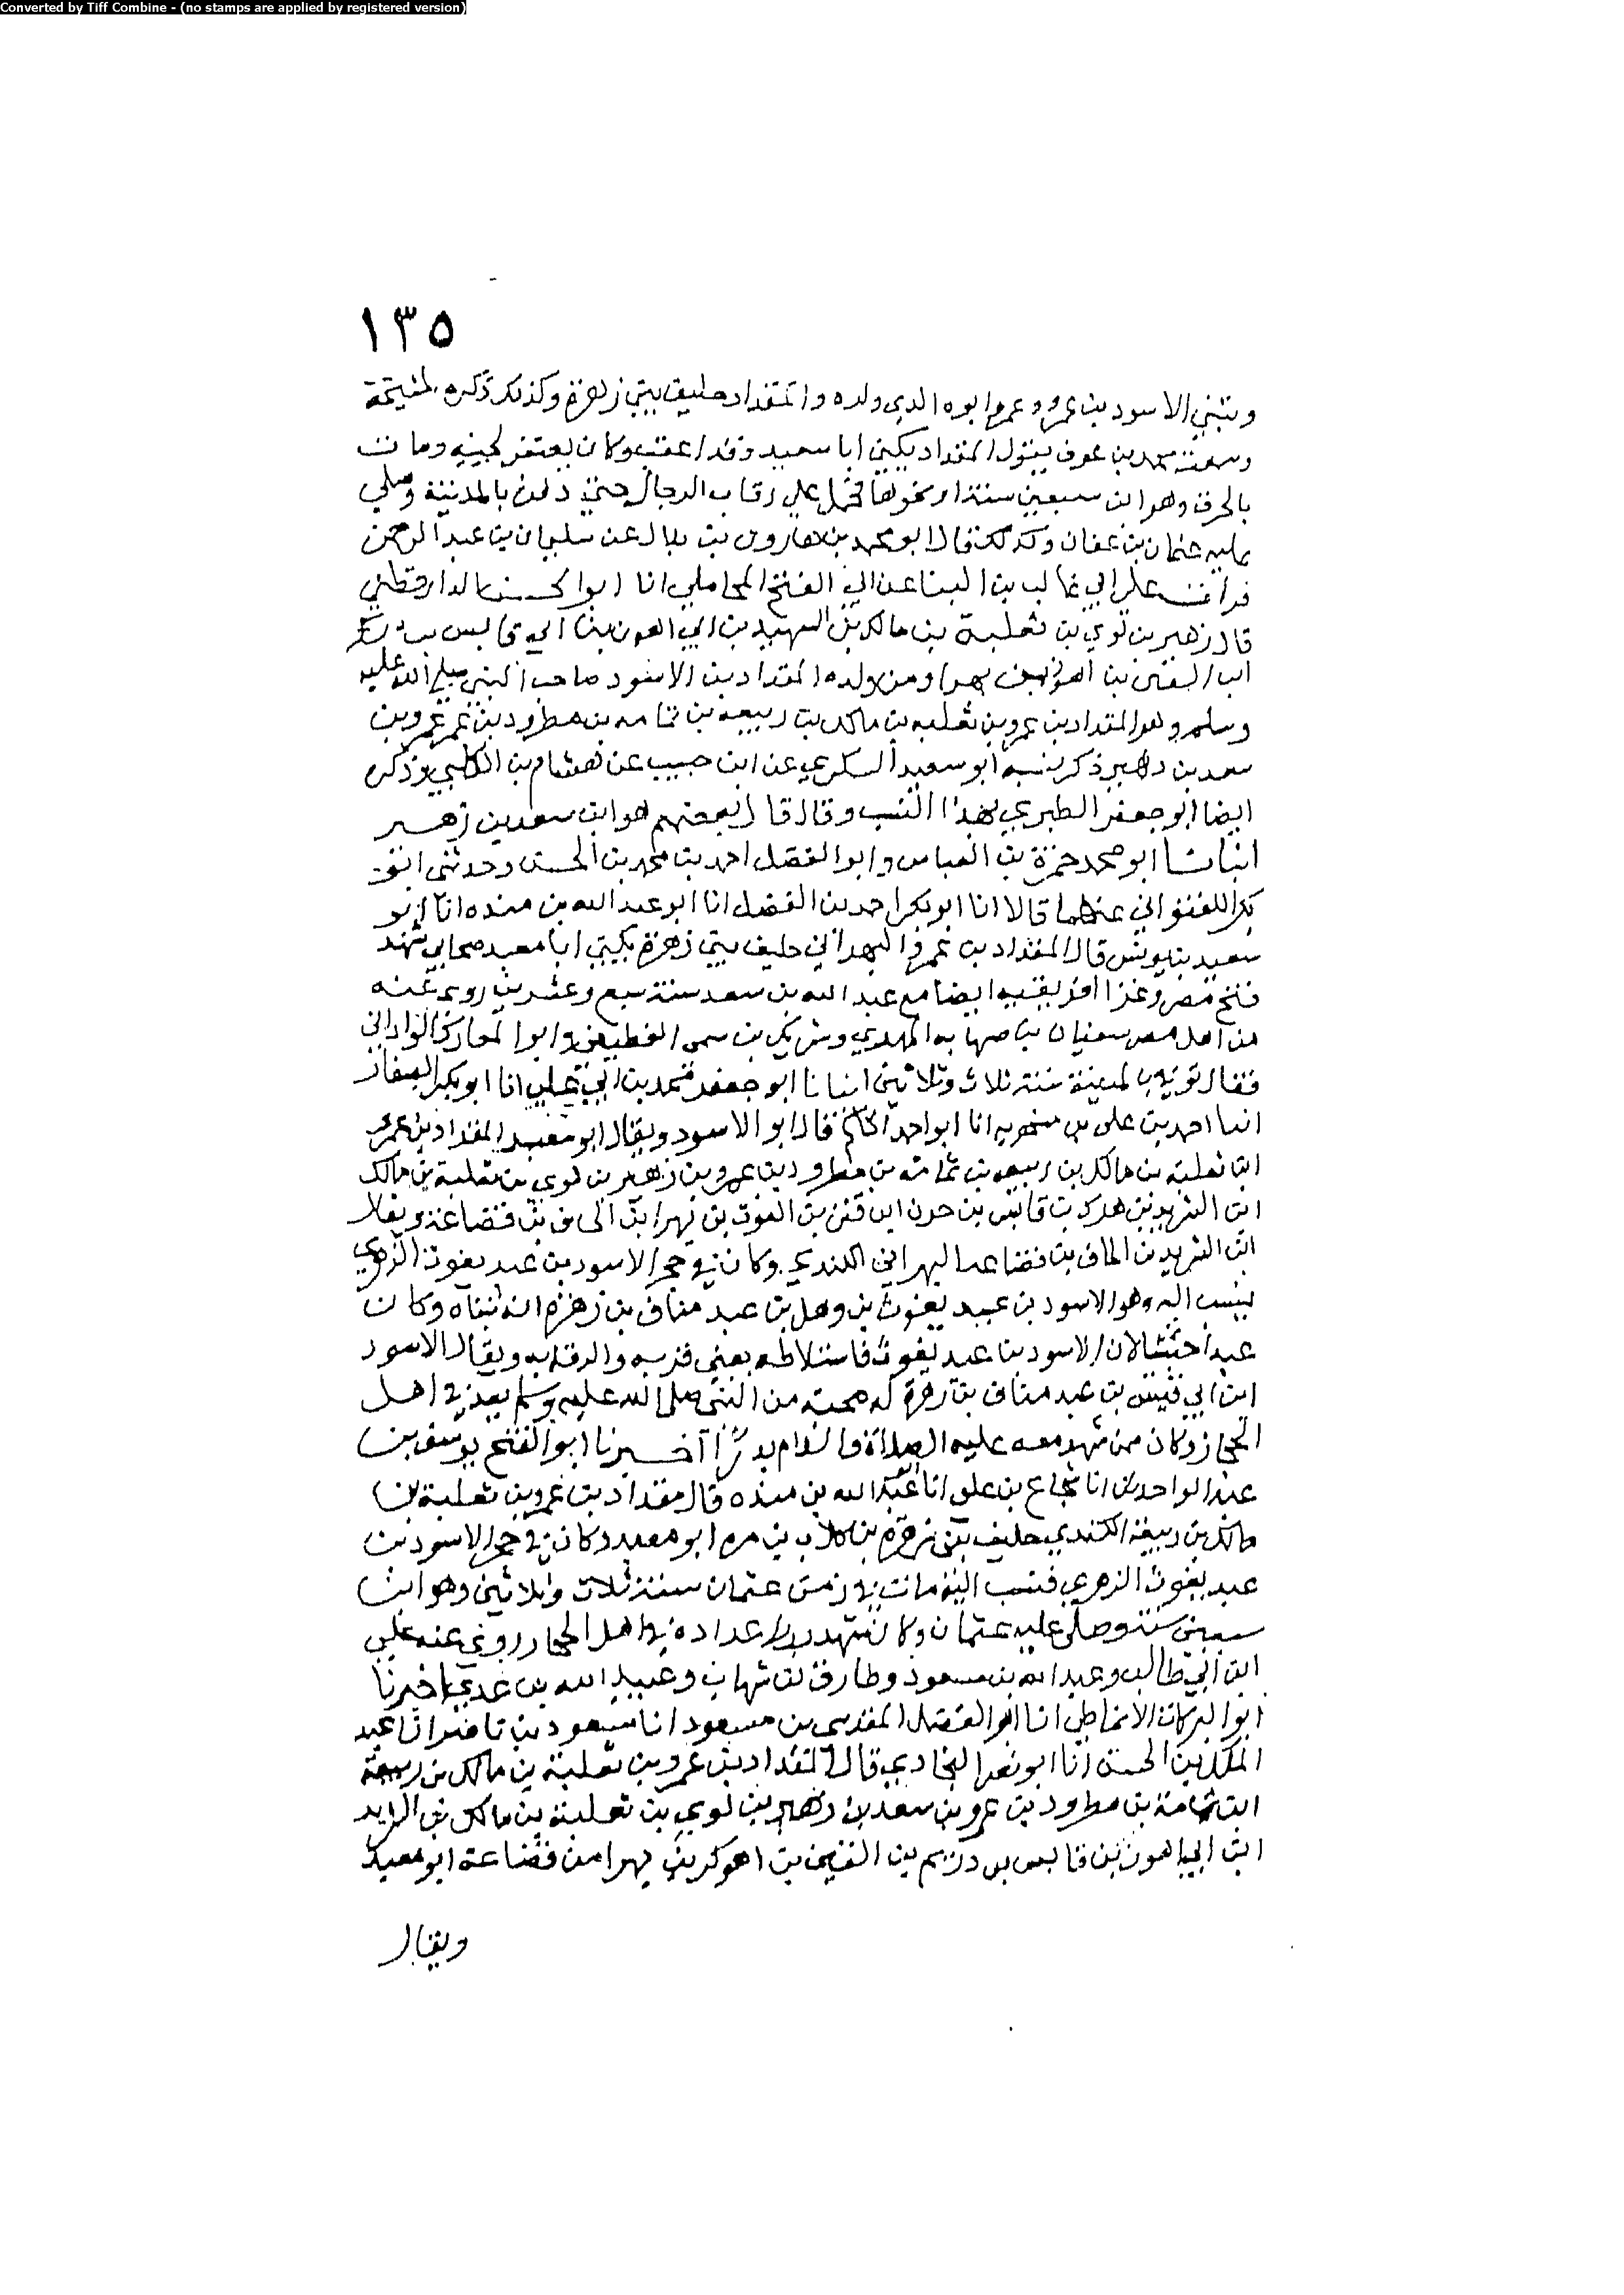 Converted by Tiff Combine - (no stamps are applied by registered version)
١٣٥
وتبني الاسود بن عمرو وعمرو ابوه الذي ولده والمقداد حليف بني زهرة وكذلك ذكره
وسمعت محمد بن عوف يقول المقداد يكنى ابا سعيد وقد اعقب وكان يصفر لحيته ومات
بالجرف وهو ابن سبعين سنة او نحوها فحمل على رقاب الرجال حتى دفن بالمدينة وصلى
عليه عثمان بن عفان وكذلك قال ابو محمد بن هارون بن بلال عن سليمان بن عبد الرحمن
قرات على ابي غالب بن البنا عن ابي الفتح المحاملي انا ابو الحسن الدارقطني
قال زهير بن لوي بن ثعلبة بن مالك بن الشريد بن ابي اهون بن ابي قابس بن
ابن القين بن اهود بن بهرا ومن ولده المقداد بن الاسود صاحب النبي صلى الله عليه
وسلم وهو المقداد بن عمرو بن ثعلبه بن مالك بن ربيعه بن ثمامه بن مطرود بن عمرو بن
سعد بن دهير ذكر نسبه ابو سعيد السكري عن ابن حبيب عن هشام بن الكلبي وذكره
ايضا ابو جعفر الطبري بهذا النسب وقال قال بعضهم هو ابن سعد بن زهير
انبانا ابو محمد حمزة بن العباس وابو الفضل احمد بن محمد بن الحسن وحدثني ابو
بكر اللفتواني عنهما قالا انا ابو بكر احمد بن الفضل انا ابو عبد الله بن منده انا ابو
سعيد بن يونس قال المقداد بن عمرو البهراني حليف بني زهرة يكنى ابا معبد صحابي شهد
فتح مصر وغزا افريقيه ايضا مع عبد الله بن سعد سنة سبع وعشرين روى عنه
من اهل مصر سفيان بن صهابه المهري وشريك بن سمى الغطيفي وابو المعارك الوادابي
فقال توفي بالمدينة سنة ثلاث وثلاثين انبانا ابو جعفر محمد بن ابي علي انا ابو بكر الصفار
انبا احمد بن علي بن منجويه انا ابو احمد الحاكم قال ابو الاسود ويقال ابو معبد المقداد بن عمرو
ابن ثعلبة بن مالك بن ربيعه بن ثمامة بن مطرود بن عمرو بن زهير بن لوي بن ثعلبة بن مالك
ابن الشريد بن هدك بن قابس بن حون ابن قين بن الغوث بن بهرا بن الحاف بن قضاعة ويقال
ابن الشريد بن الحاف بن قضاعه البهراني الكندي وكان في حجر الاسود بن عبد يغوث الزهري
ينسب اليه وهو الاسود بن عبد يغوث بن وهب بن عبد مناف بن زهرة انه تبناه وكان
عبدا حبشيا لان الاسود بن عبد يغوث فاستلاطه يعني قربه والزقه به ويقال الاسود
ابن ابي قيس بن عبد مناف بن زهرة له صحبة من النبي صلى الله عليه وسلم يعد في اهل
الحجاز وكان ممن شهد معه عليه الصلاة والسلام بدرا اخبرنا ابو الفتح يوسف بن
عبد الواحد انا شجاع بن علي انا ابو عبد الله بن منده قال مقداد بن عمرو بن ثعلبة بن
مالك بن ربيعة الكندي حليف بني زهرة بن كلاب بن مره ابو معبد وكان في حجر الاسود بن
عبد يغوث الزهري فنسب اليه مات في زمن عثمان سنة ثلاث وثلاثين وهو ابن
سبعين سنة وصلى عليه عثمان وكان شهد بدرا عداده في اهل الحجاز روى عنه علي
ابن ابي طالب وعبد الله بن مسعود وطارق بن شهاب وعبيد الله بن عدي اخبرنا
ابو البركات الانماطي انا ابو الفضل المقدسي بن مسعود انا مسعود بن ناصر انا عبد
الملك بن الحسن انا ابو نصر البخاري قال المقداد بن عمرو بن ثعلبة بن مالك بن ربيعة
ابن ثمامة بن مطرود بن عمرو بن سعد بن دهير بن لوي بن ثعلبة بن مالك بن الشريد
ابن ابي اهون بن قابس بن دريم بن القين بن اهود بن بهرا من قضاعة ابو معبد
ويقال